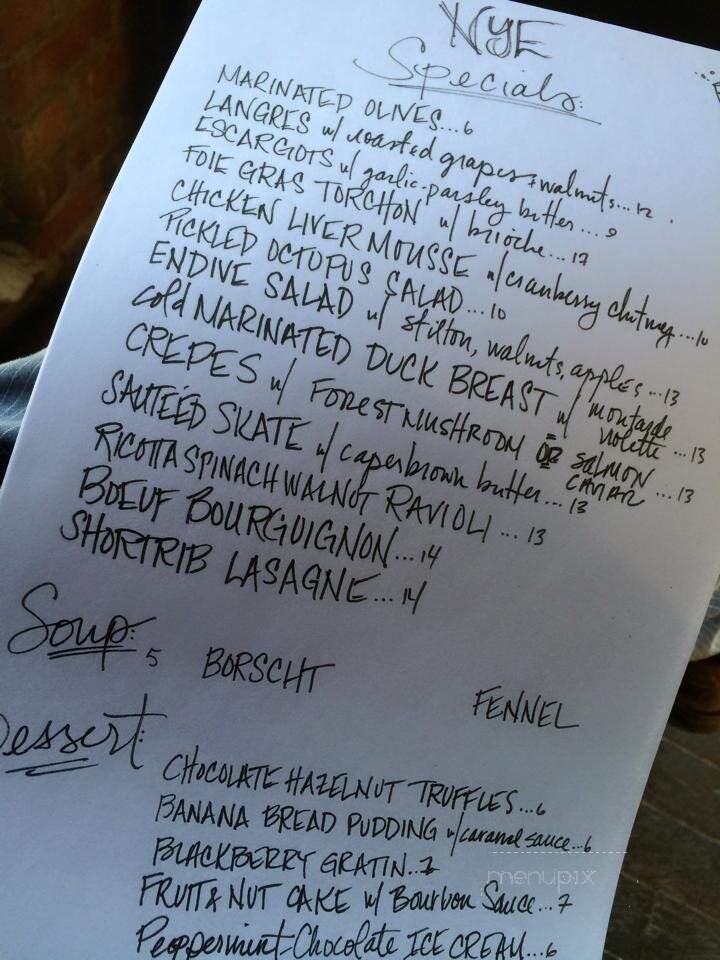 NYE
Specials:
MARINATED OLIVES...6
LANGRES w/ roasted grapes + walnuts...12.
ESCARGOTS w/ garlic-parsley butter...9
FOIE GRAS TORCHON w/ brioche...17
CHICKEN LIVER MOUSSE w/cranberry chutney...10
PICKLED OCTOPUS SALAD...10
ENDIVE SALAD w/ stilton, walnuts, apples...13
cold MARINATED DUCK BREAST w/ moutarde violette...13
CREPES w/ FOREST MUSHROOM OR SALMON CAVIAR...13
SAUTEÉD SKATE w/ caperbrown butter...13
RICOTTA SPINACH WALNUT RAVIOLI...13
BOEUF BOURGUIGNON...14
SHORTRIB LASAGNE...14
Soup: 5 BORSCHT FENNEL
Dessert:
CHOCOLATE HAZELNUT TRUFFLES...6
BANANA BREAD PUDDING w/caramel sauce...6
BLACKBERRY GRATIN...7
FRUIT & NUT CAKE w/ Bourbon Sauce...7
Peppermint-Chocolate ICE CREAM...6
menupix